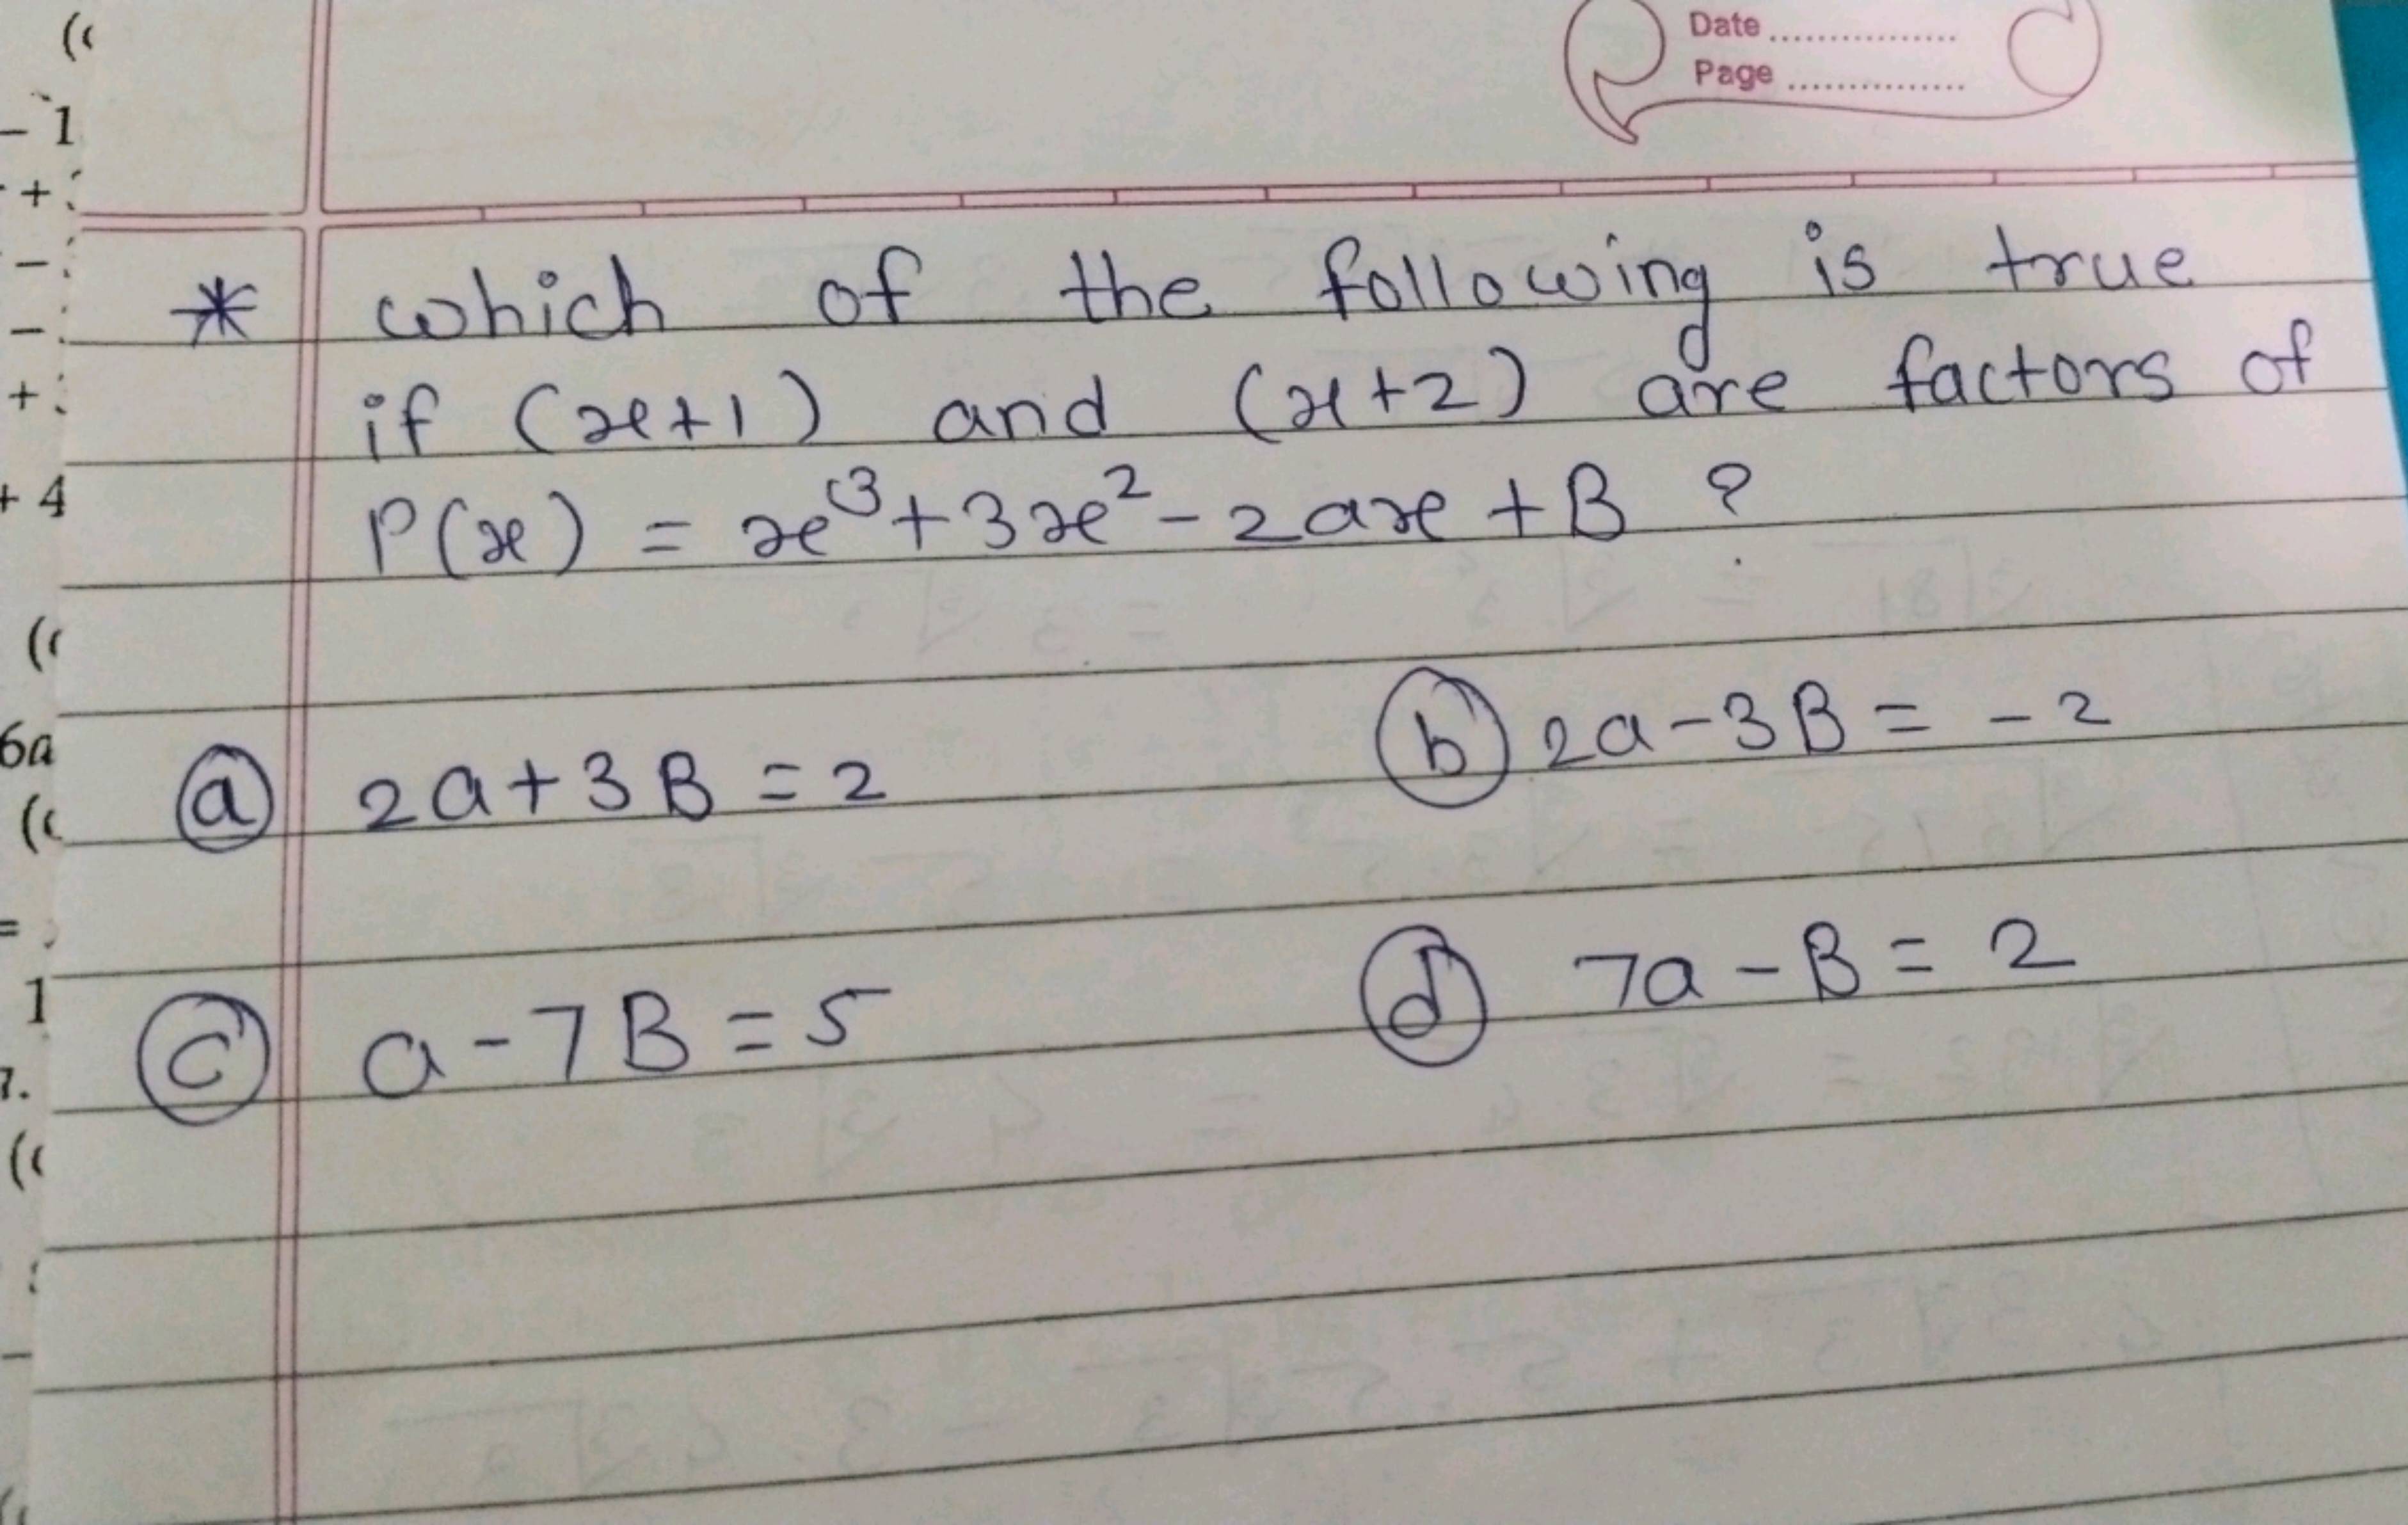 Date
Page
* which of the following is true
if (x+1) and (x+2) are factors of
P(x) = x³+3x²-2ax+B ?
(a) 2a+3B=2
(b) 2a-3B=-2
(c) a-7B=5
(d) 7a-B=2